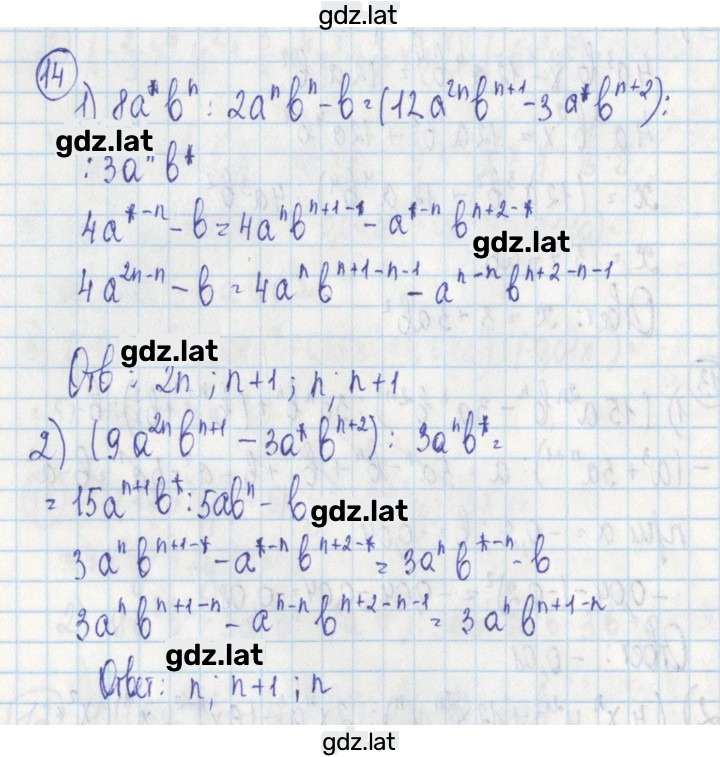 gdz.lat
14
1) 8a*bⁿ : 2aⁿbⁿ - b = (12a²ⁿbⁿ⁺¹ - 3a*bⁿ⁺²) :
gdz.lat
: 3aⁿb*
4a*⁻ⁿ - b = 4aⁿbⁿ⁺¹⁻* - a*⁻ⁿ bⁿ⁺²⁻*
gdz.lat
4a²ⁿ⁻ⁿ - b = 4aⁿ bⁿ⁺¹⁻ⁿ⁻¹ - aⁿ⁻ⁿ bⁿ⁺²⁻ⁿ⁻¹
gdz.lat
Отв : 2n ; n+1 ; n; n+1
2) (9a²ⁿbⁿ⁺¹ - 3a*bⁿ⁺²) : 3aⁿb* =
= 15aⁿ⁺¹b* : 5abⁿ - b
gdz.lat
3aⁿbⁿ⁺¹⁻* - a*⁻ⁿ bⁿ⁺²⁻* = 3aⁿb*⁻ⁿ - b
3aⁿbⁿ⁺¹⁻ⁿ - aⁿ⁻ⁿ bⁿ⁺²⁻ⁿ⁻¹ = 3aⁿbⁿ⁺¹⁻ⁿ
gdz.lat
Ответ: n; n+1 ; n
gdz.lat